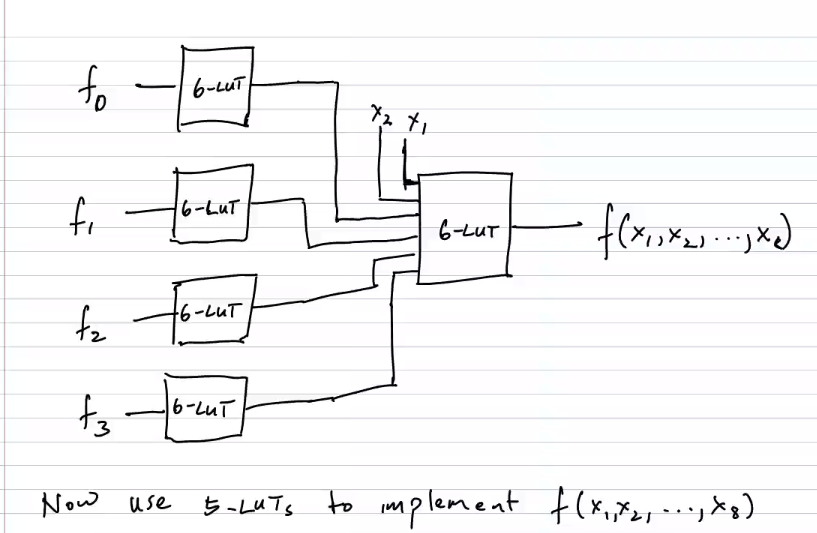 f0 6-LUT
x2 x1
f1 6-LUT
6-LUT f(x1,x2, ...,x8)
f2 6-LUT
f3 6-LUT
Now use 5-LUTs to implement f(x1,x2, ...,x8)